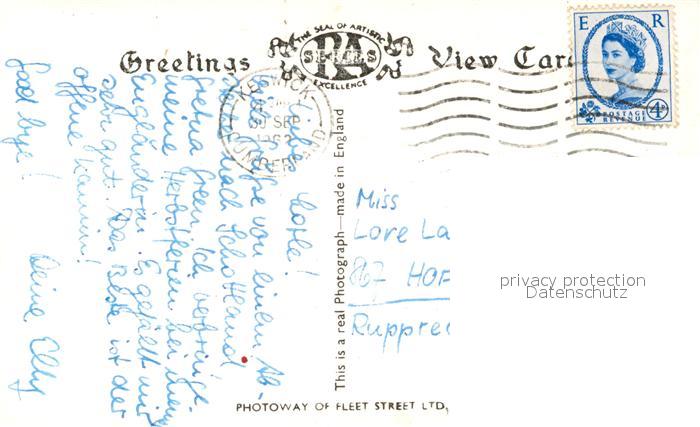 Greetings
THE SEAL OF ARTISTIC
RA
SERIES
EXCELLENCE
View Card
E R
4D
POSTAGE
REVENUE
KESWICK
30 SEP
CUMBERLAND
Liebe Lotte!
Grüße von einem Ab-
nach Schottland
Gretna Green. Ich verbringe
meine Herbstferien bei einer
Engländerin. Es gefällt mir
sehr gut. Das Beste ist der
offene Kamin!
Good bye!
Deine Elly
This is a real Photograph—made in England
Miss
Lore La
867 HOF
Ruppre
privacy protection
Datenschutz
PHOTOWAY OF FLEET STREET LTD,